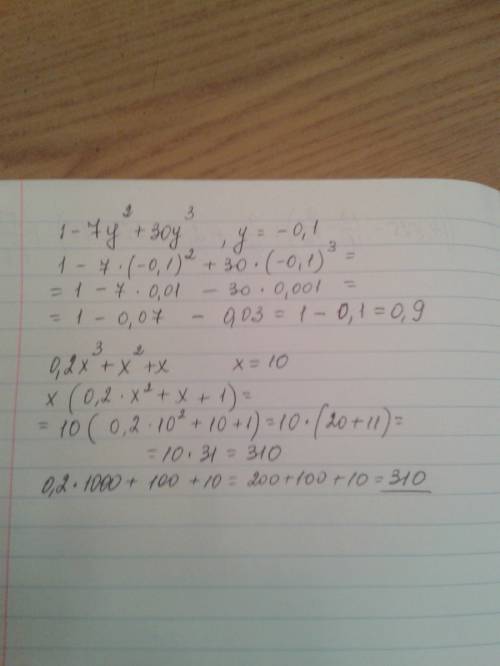 1 - 7y² + 30y³ , y = -0,1
1 - 7·(-0,1)² + 30·(-0,1)³ =
= 1 - 7·0,01 - 30·0,001 =
= 1 - 0,07 - 0,03 = 1 - 0,1 = 0,9
0,2x³ + x² + x x = 10
x ( 0,2·x² + x + 1) =
= 10 ( 0,2·10² + 10 + 1) = 10·(20 + 11) =
= 10·31 = 310
0,2·1000 + 100 + 10 = 200 + 100 + 10 = 310